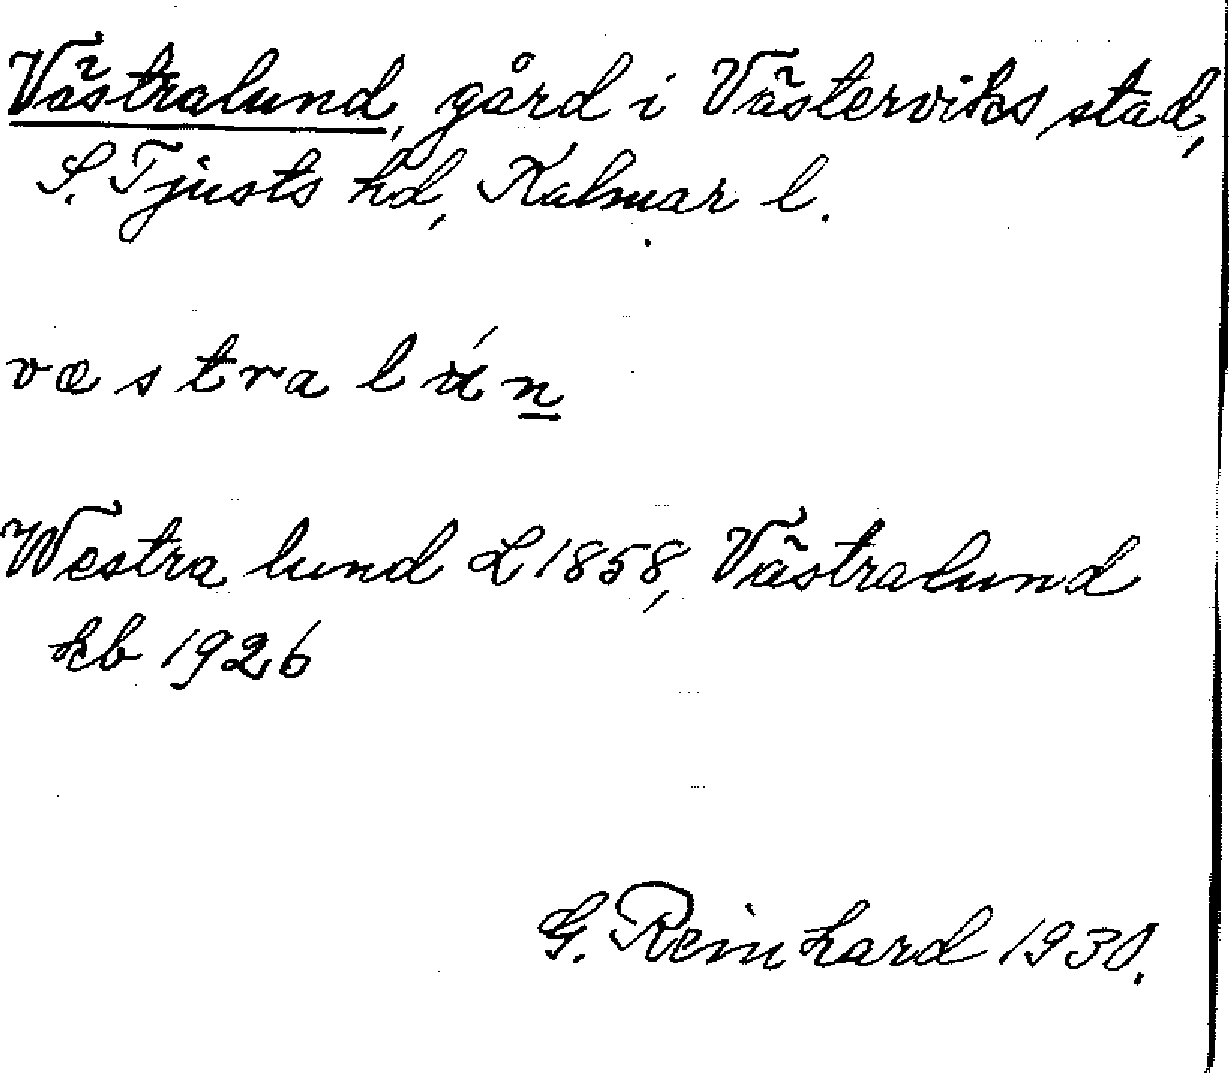 Västralund, gård i Västerviks stad,
S. Tjusts hd, Kalmar l.
væstralún
Westra lund L 1858, Västralund
kb 1926
G. Reinhard 1930.